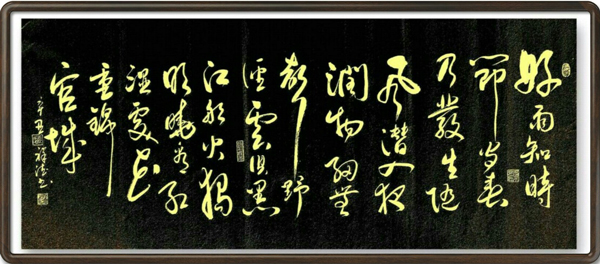 好雨知時
節當春
乃發生隨
風潛入夜
潤物細無
聲野
徑雲俱黑
江船火獨
明曉看紅
濕處花
重錦
官城
辛丑